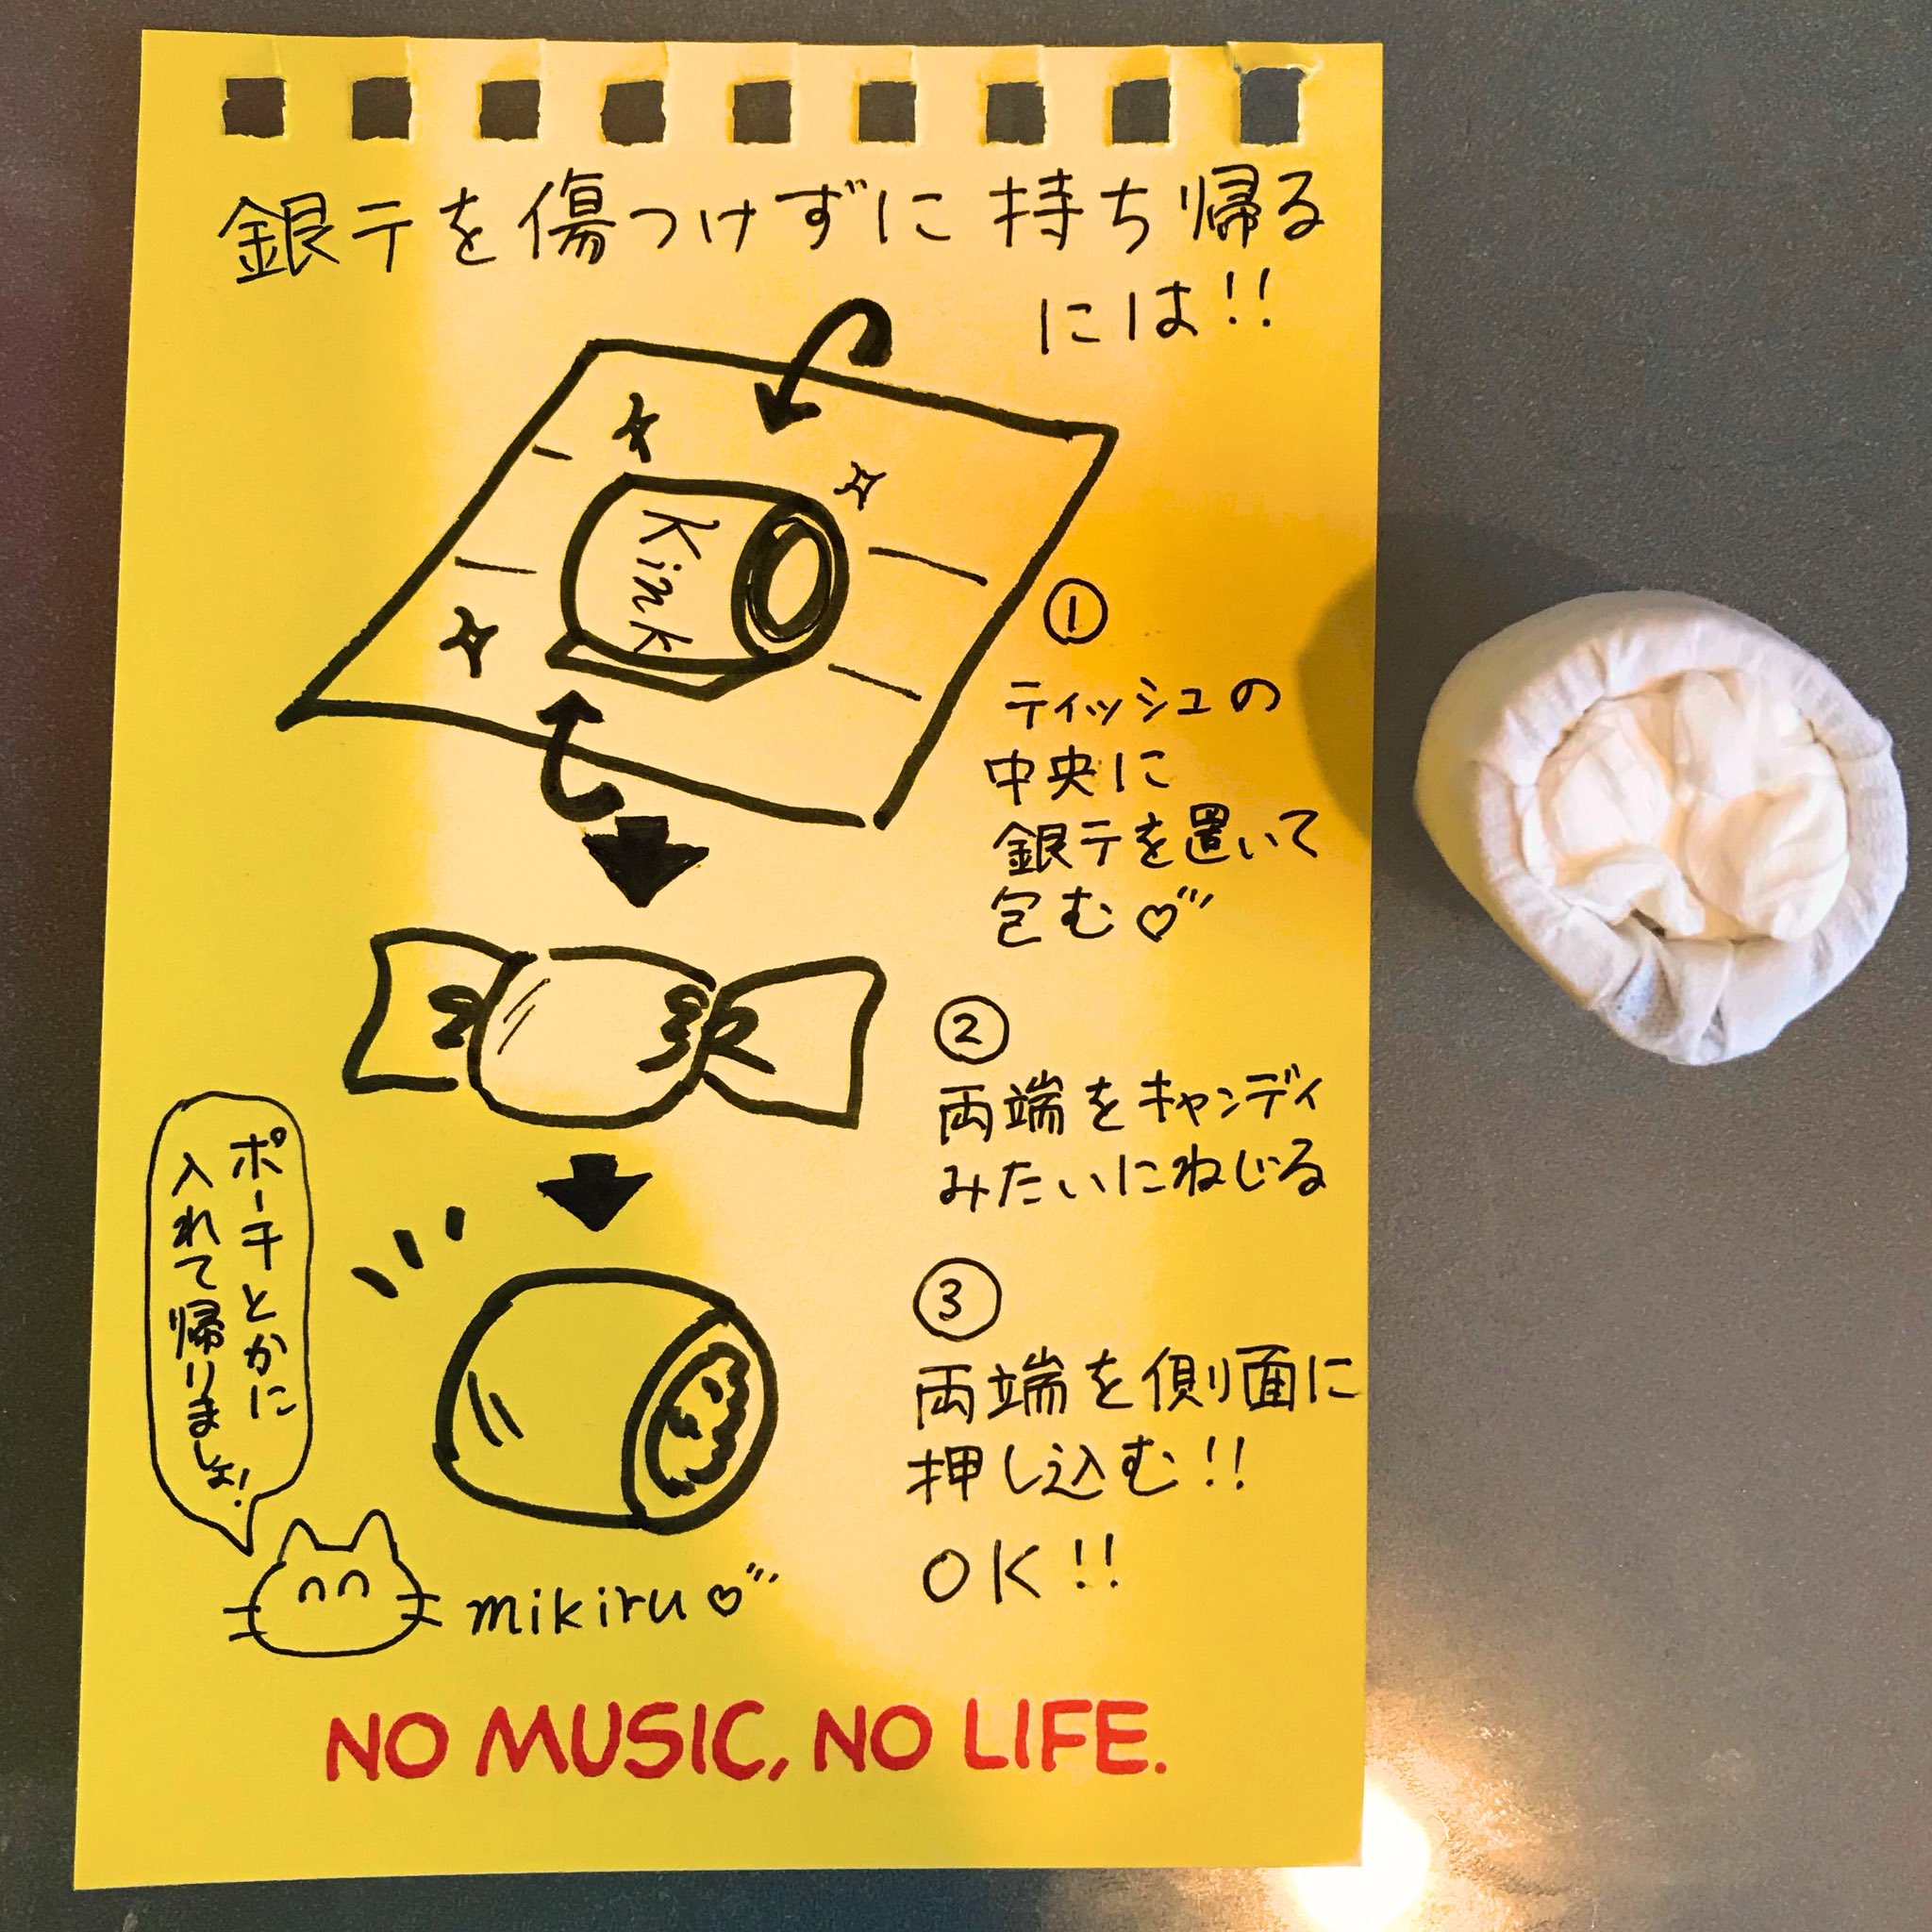 銀テを傷つけずに持ち帰る
には!!
Kink
①
ティッシュの
中央に
銀テを置いて
包む♡
②
両端をキャンディ
みたいにねじる
③
両端を側面に
押し込む!!
OK!!
ポーチとかに
入れて帰りましょ!
mikiru♡
NO MUSIC, NO LIFE.